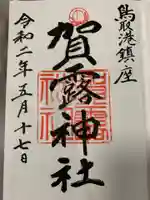 鳥取港鎮座
賀露神社
令和二年五月十七日